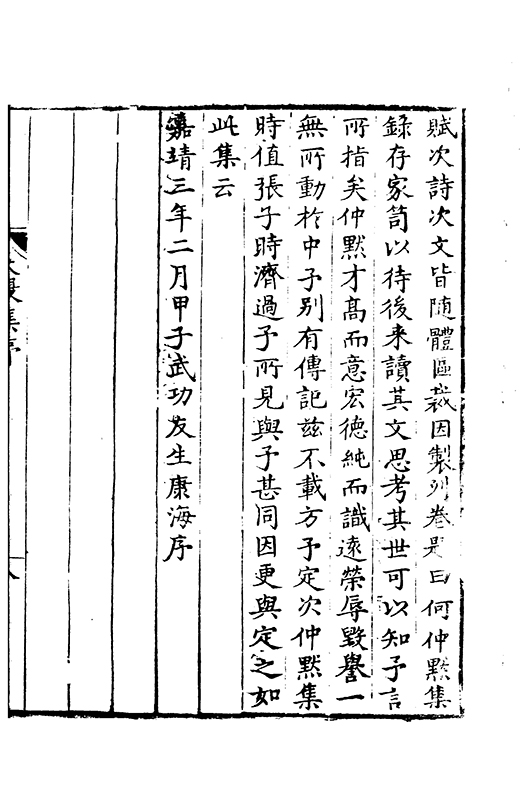 賦次詩次文皆随體區裁因製列卷是曰何仲黙集
錄存家笥以待後来讀其文思考其世可以知予言
所指矣仲黙才髙而意宏德純而識逺榮辱毀譽一
無所動於中予别有傳記兹不載方予定次仲黙集
時值張子時濟過予所見與予甚同因更與定之如
此集云
嘉靖三年二月甲子武功友生康海序
復集序
八